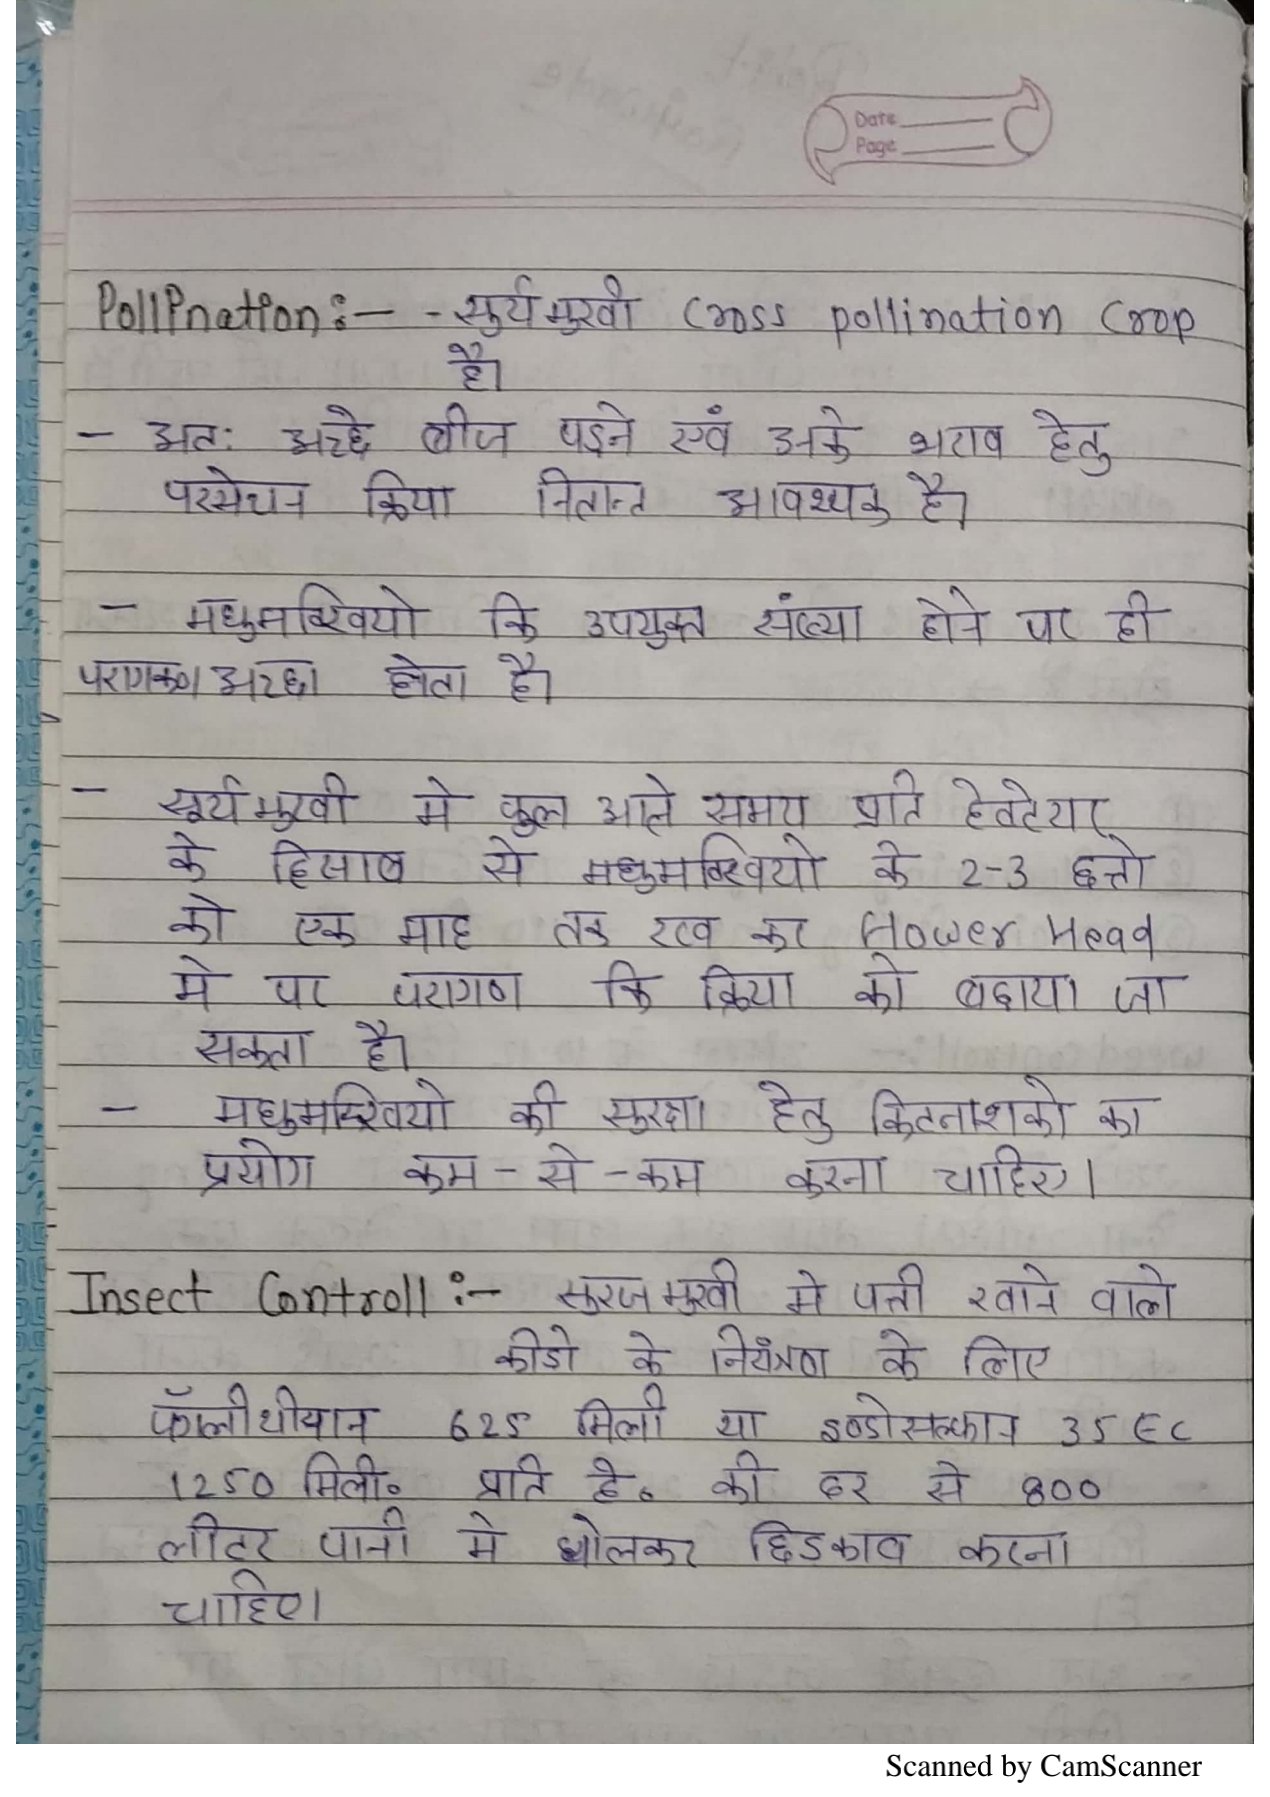 Date
Page
Pollination:— - सुर्यमुखी Cross pollination Crop
है।
- अतः अच्छे बीज पड़ने एवं उनके भराव हेतु
परसेचन क्रिया नितान्त आवश्यक है।
- मधुमक्खियो कि उपयुक्त संख्या होने पर ही
परागकण अच्छा होता है।
- सूर्यमुखी मे फुल आते समय प्रति हेक्टेयर
के हिसाब से मधुमक्खियो के 2-3 छत्तो
को एक माह तक रख कर Flower Head
मे पर परागण कि क्रिया को बढाया जा
सकता है।
- मधुमक्खियो की सुरक्षा हेतु किटनाशको का
प्रयोग कम-से-कम करना चाहिए।
Insect Controll:- सुरजमुखी मे पत्ती खाने वाले
कीडो के नियंत्रण के लिए
फॉलीथीयान 625 मिली या इण्डोसल्फान 35 EC
1250 मिली० प्रति हे० की दर से 800
लीटर पानी मे घोलकर छिडकाव करना
चाहिए।
Scanned by CamScanner